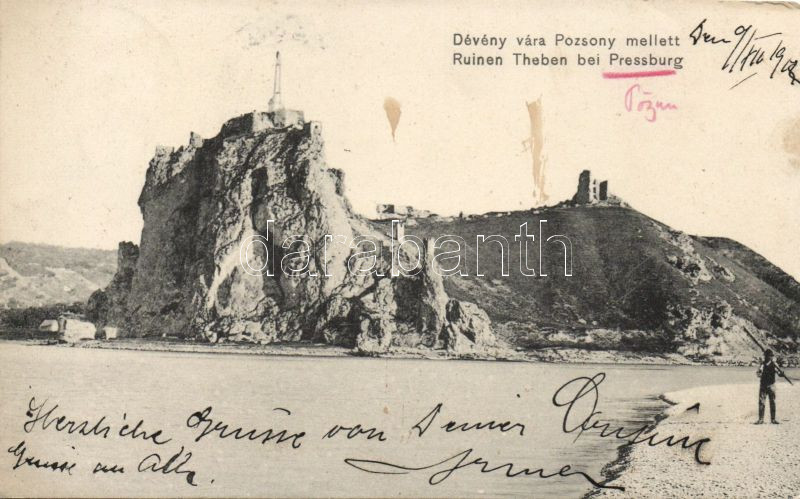 Dévény vára Pozsony mellett
Ruinen Theben bei Pressburg
Den 9/VIII 1902
darabanth
Herzliche Grüsse von Deiner
Grüsse an Alle.